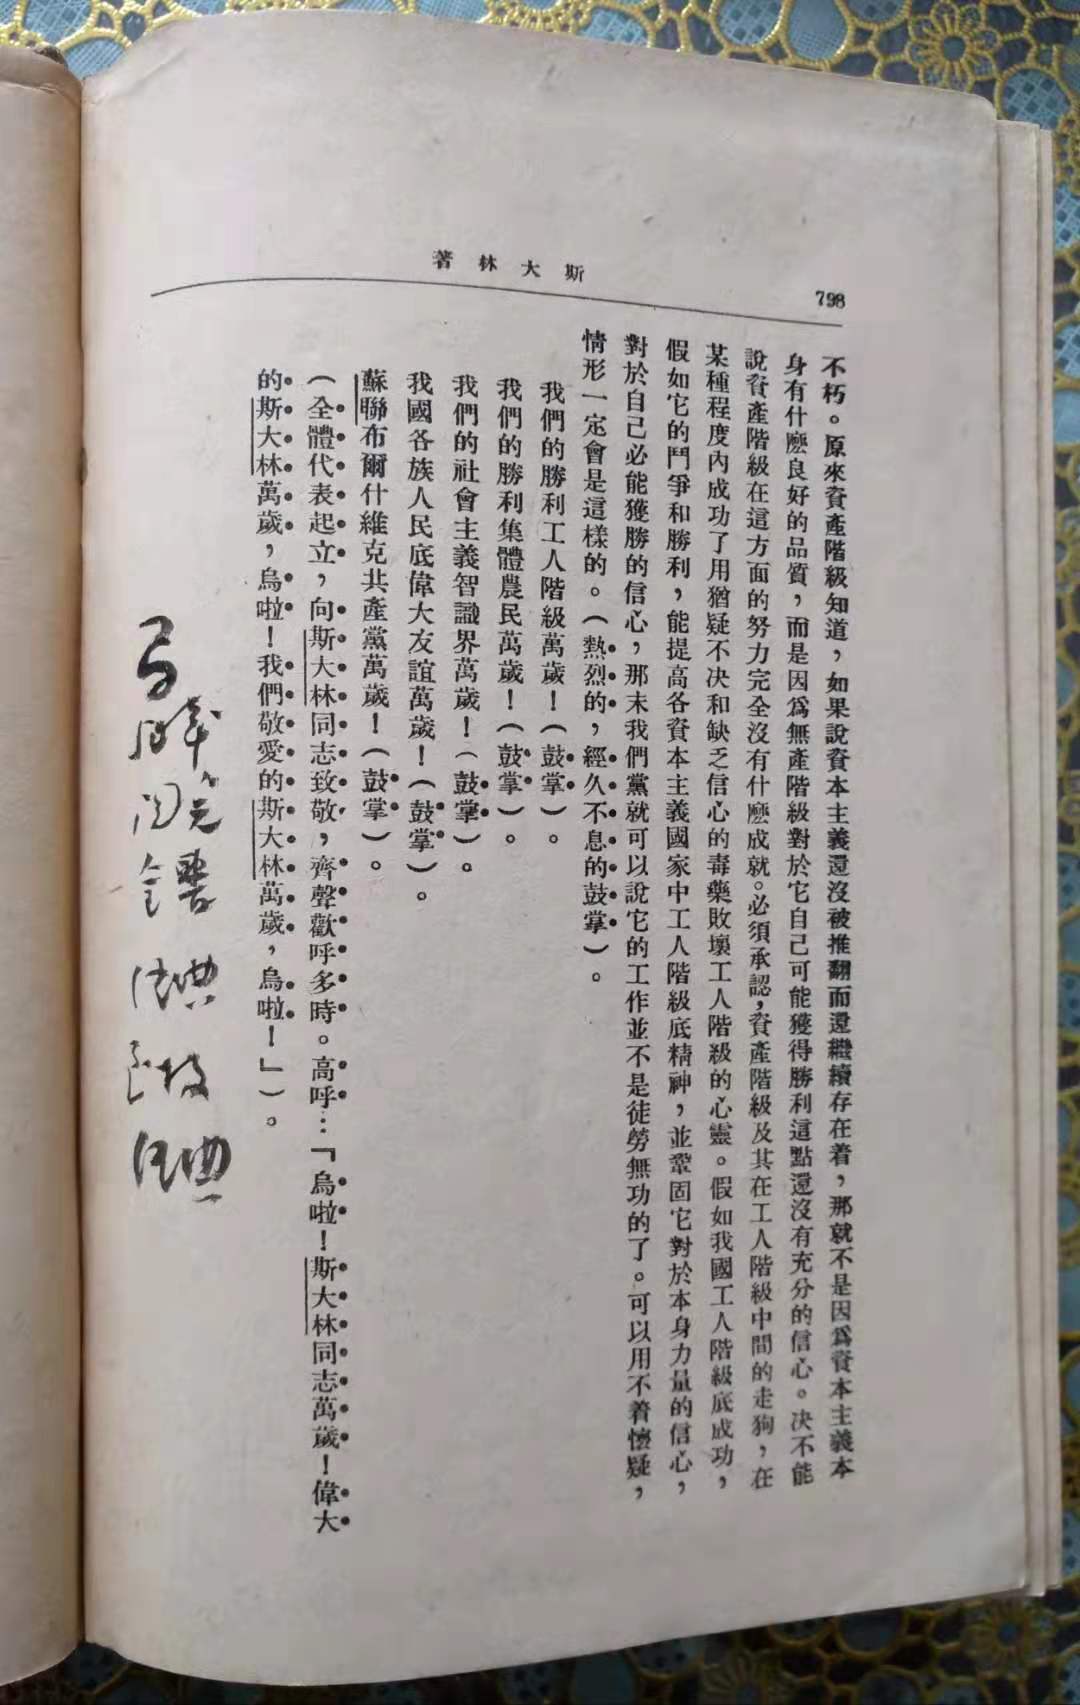 斯大林著
798
不朽。原來資產階級知道，如果說資本主義還沒被推翻而還繼續存在着，那就不是因爲資本主義本
身有什麼良好的品質，而是因爲無產階級對於它自己可能獲得勝利這點還沒有充分的信心。决不能
說資產階級在這方面的努力完全沒有什麼成就。必須承認，資產階級及其在工人階級中間的走狗，在
某種程度內成功了用猶疑不决和缺乏信心的毒藥敗壞工人階級的心靈。假如我國工人階級底成功，
假如它的鬥爭和勝利，能提高各資本主義國家中工人階級底精神，並鞏固它對於本身力量的信心，
對於自己必能獲勝的信心，那末我們黨就可以說它的工作並不是徒勞無功的了。可以用不着懷疑，
情形一定會是這樣的。（熱烈的，經久不息的鼓掌）。
我們的勝利工人階級萬歲！（鼓掌）。
我們的勝利集體農民萬歲！（鼓掌）。
我們的社會主義智識界萬歲！（鼓掌）。
我國各族人民底偉大友誼萬歲！（鼓掌）。
蘇聯布爾什維克共產黨萬歲！（鼓掌）。
（全體代表起立，向斯大林同志致敬，齊聲歡呼多時。高呼：「烏啦！斯大林同志萬歲！偉大
的斯大林萬歲，烏啦！我們敬愛的斯大林萬歲，烏啦！」）。